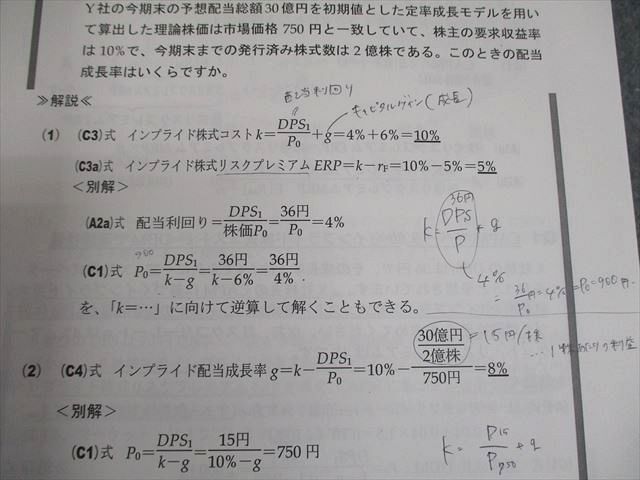 Y社の今期末の予想配当総額30億円を初期値とした定率成長モデルを用い
て算出した理論株価は市場価格 750 円と一致していて、株主の要求収益率
は 10%で、今期末までの発行済み株式数は 2 億株である。このときの配当
成長率はいくらですか。
≫解説≪
配当利回り
キャピタルゲイン(成長)
(1) (C3)式 インプライド株式コスト k=DPS₁/P₀+g=4%+6%=10%
(C3a)式 インプライド株式リスクプレミアム ERP=k−rF=10%−5%=5%
<別解>
(A2a)式 配当利回り=DPS₁/株価P₀=36円/P₀=4%
36円
k=DPS/P+g
900
(C1)式 P₀=DPS₁/k−g=36円/k−6%=36円/4%
4%
36円/P₀=4% P₀=900円
を、「k=…」に向けて逆算して解くこともできる。
(2) (C4)式 インプライド配当成長率 g=k−DPS₁/P₀=10%−30億円/2億株/750円=8%
=15円/株
<別解>
(C1)式 P₀=DPS₁/k−g=15円/10%−g=750 円